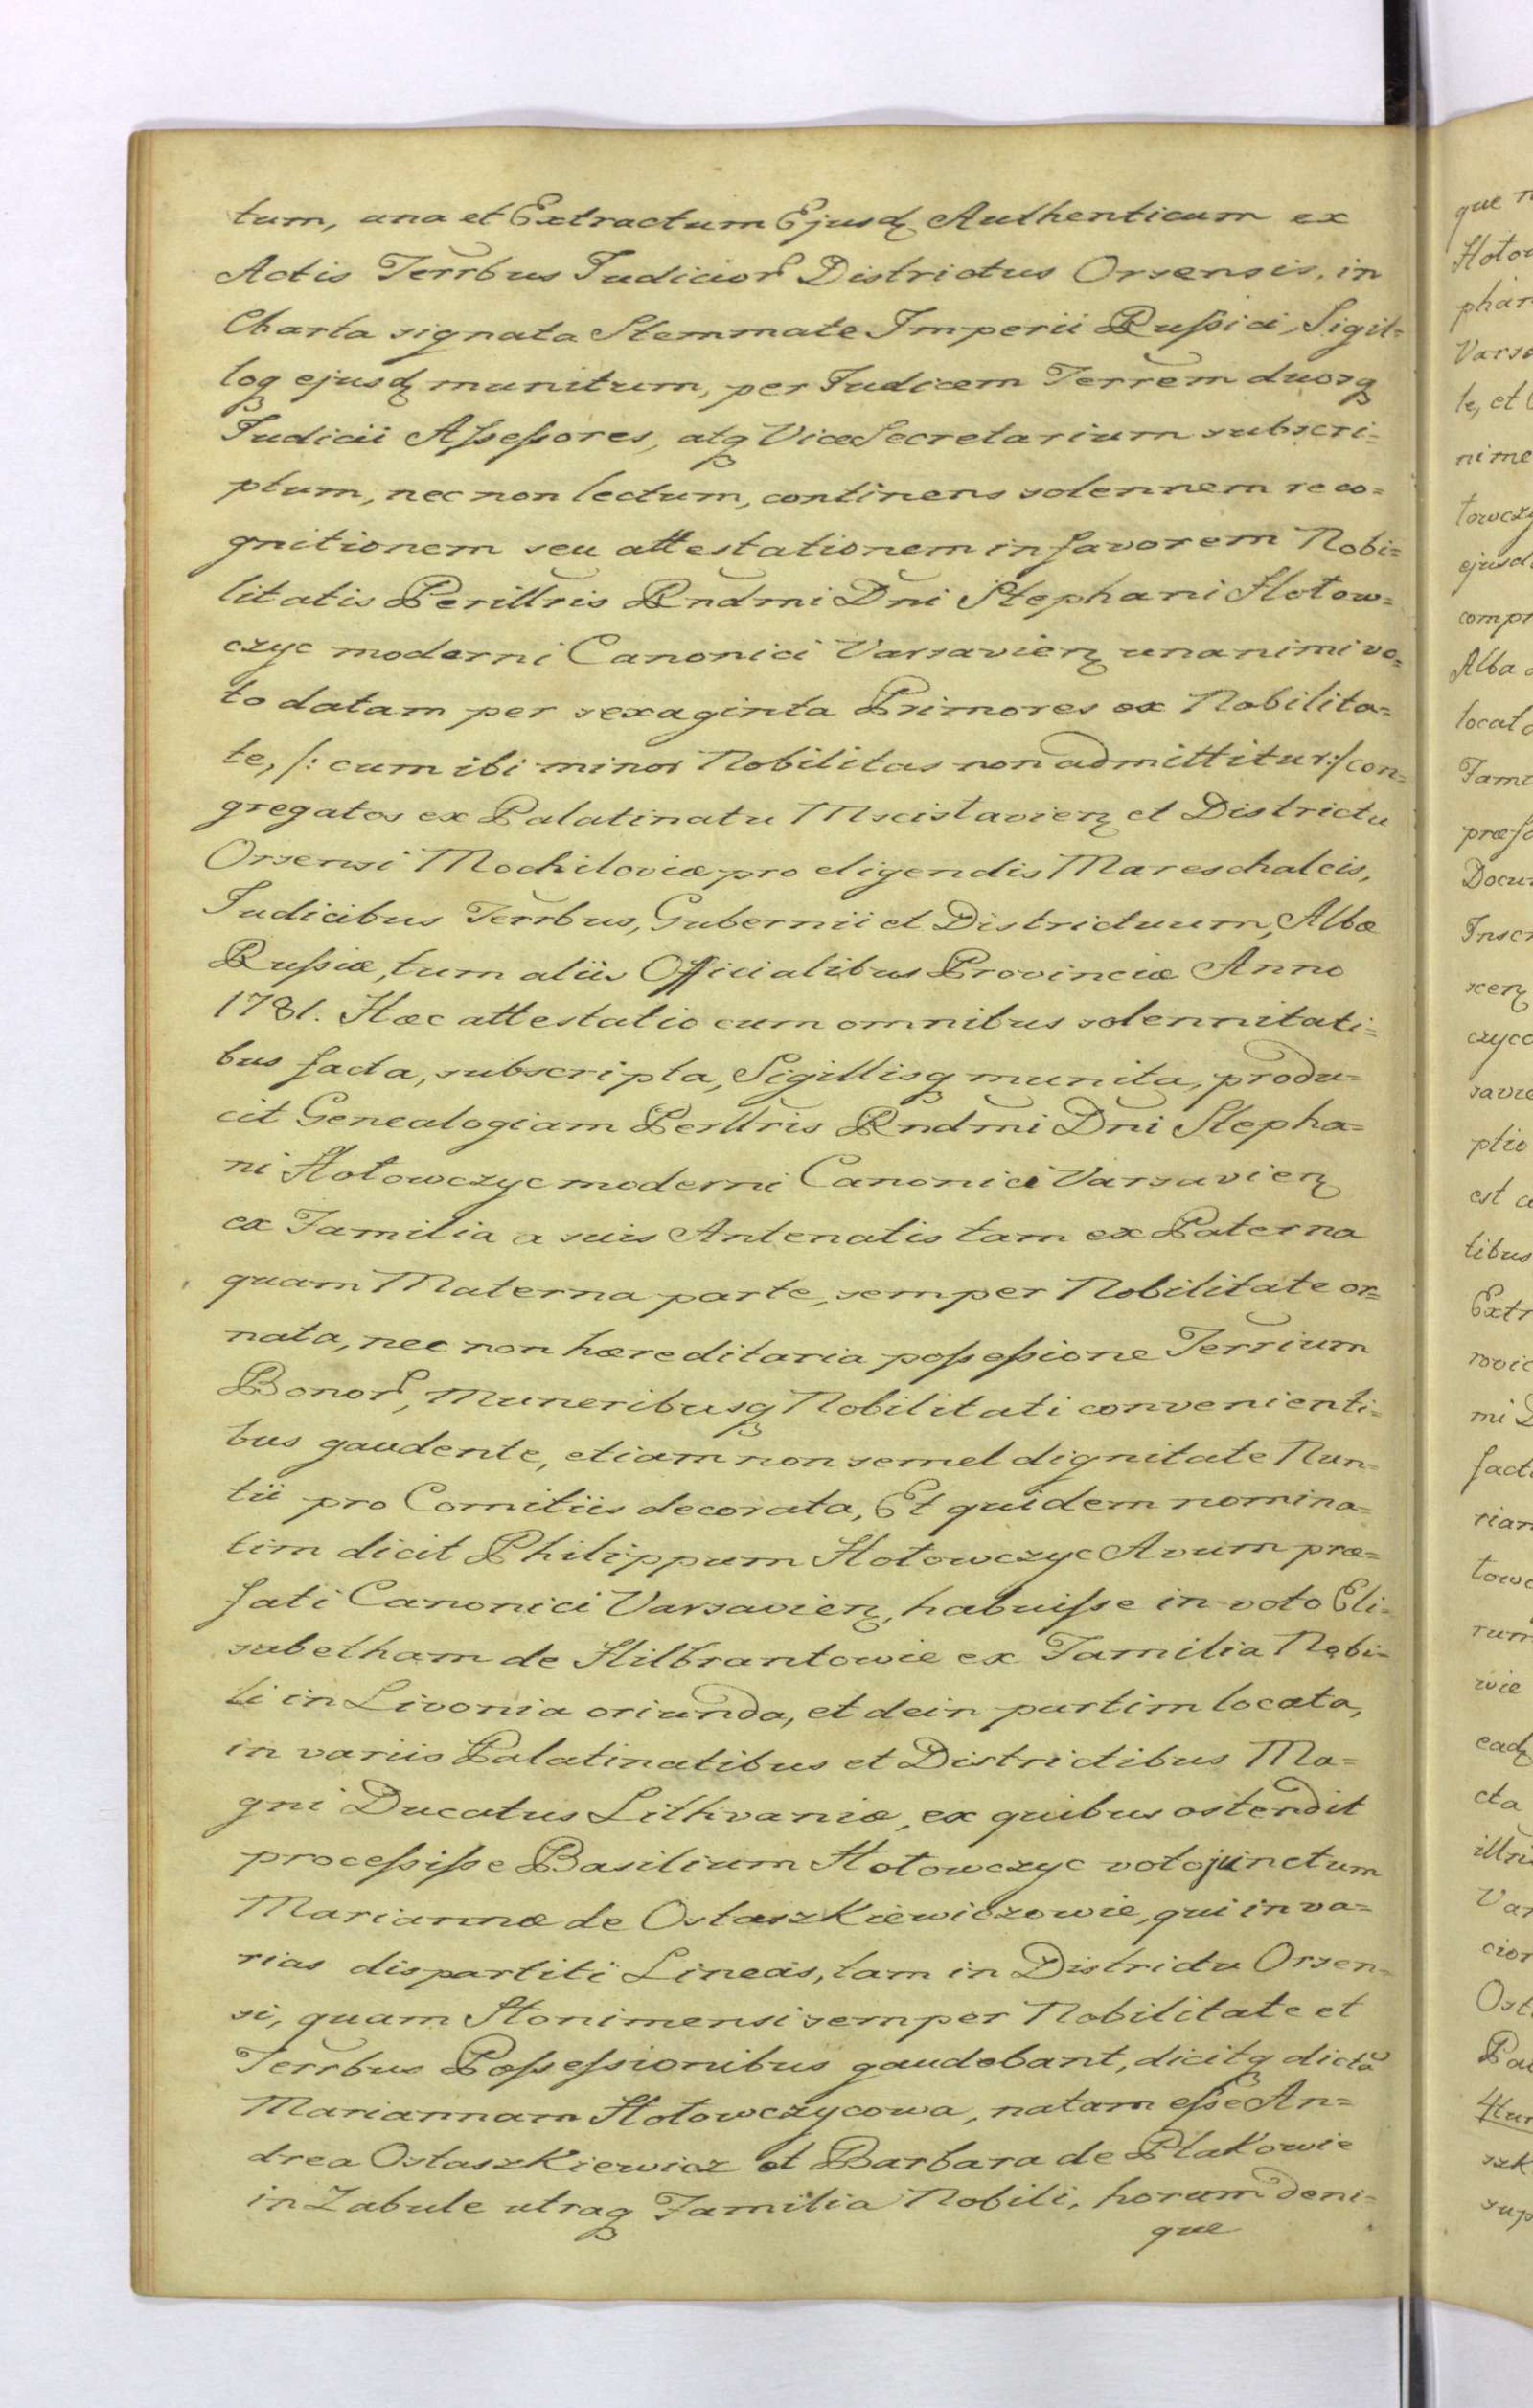 tum, una et Extractum Ejusdꝫ Authenticum ex
Actis Terrbus Judicior̄ Districtus Orsensis, in
Charta signata Stemmate Imperii Rußici, Sigil=
loq̢ ejusdꝫ munitum, per Judicem Terrem duosq̢
Judicii Aßeßores, atq̢ ViceSecretarium subscri=
ptum, nec non lectum, continens solennem reco=
gnitionem seu attestationem in favorem Nobi=
litatis Perillris Rndmi Dni Stephani Hołow=
czyc moderni Canonici Varsavienꝫ unanimi vo=
to datam per sexaginta Primores ex Nobilita=
te, /: cum ibi minor Nobilitas non admittitur :/ con=
gregatos ex Palatinatu Mscislavienꝫ et Districtu
Orsensi Mochiloviæ pro eligendis Mareschalcis,
Judicibus Terrbus, Gubernii et Districtuum, Albæ
Rußiæ, tum aliis Officialibus Provinciæ Anno
1781. Hæc attestatio cum omnibus solennitati=
bus facta, subscripta, Sigillisq̢ munita, produ=
cit Genealogiam Perllris Rndmi Dni Stepha=
ni Hołowczyc moderni Canonici Varsavienꝫ
ex Familia a suis Antenatis tam ex Paterna
quam Materna parte, semper Nobilitate or=
nata, nec non hæreditaria poßeßione Terrium
Bonor̄, Muneribusq̢ Nobilitati convenienti=
bus gaudente, etiam non semel dignitate Nun=
tii pro Comitiis decorata, Et quidem nomina=
tim dicit Philippum Hołowczyc Avum præ=
fati Canonici Varsavienꝫ, habuiße in voto Eli=
sabetham de Hilbrantowie ex Familia Nobi=
li in Livonia oriunda, et dein partim locata,
in variis Palatinatibus et Districtibus Ma=
gni Ducatus Lithvaniæ, ex quibus ostendit
proceßiße Basilium Hołowczyc voto junctum
Mariannæ de Ostaszkiewiczowie, qui in va=
rias dispartiti Lineas, tam in Districtu Orsen=
si, quam Słonimensi semper Nobilitate et
Terrbus Poßeßionibus gaudebant, dicitq̢ dictā
Mariannam Hołowczycowa, natam eße An=
drea Ostaszkiewicz et Barbara de Ptakowie
in Zabule utraq̢ Familia Nobili, horum deni=
que